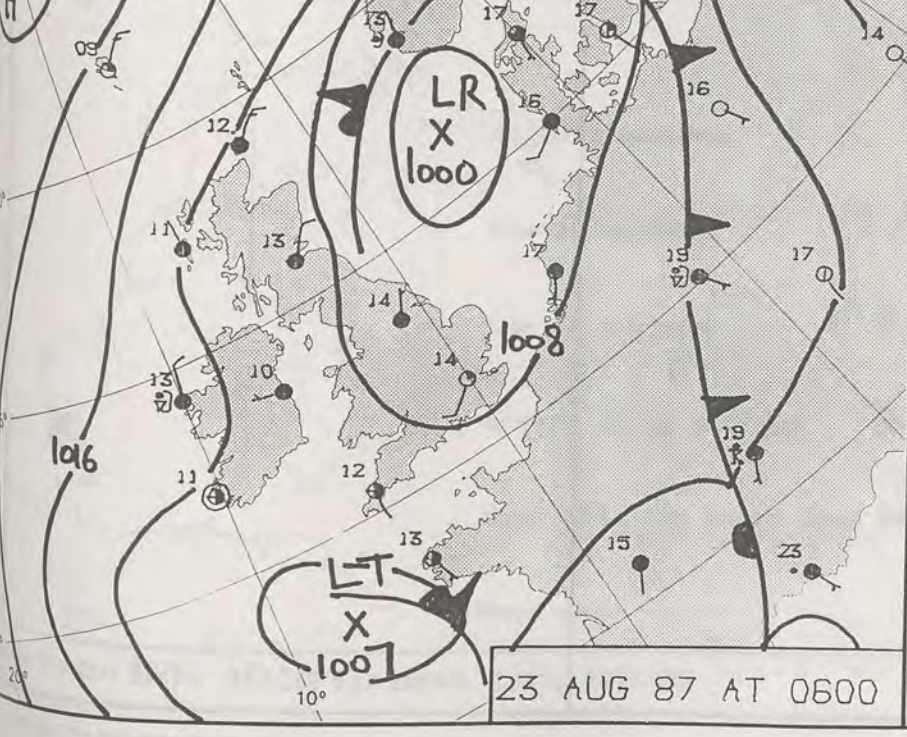 H
09
13
9
17
17
14
16
16
LR
X
1000
12
11
13
19
17
17
14
14
1008
13
10
19
1016
11
12
13
15
23
L-T
X
1007
20°
10°
23 AUG 87 AT 0600